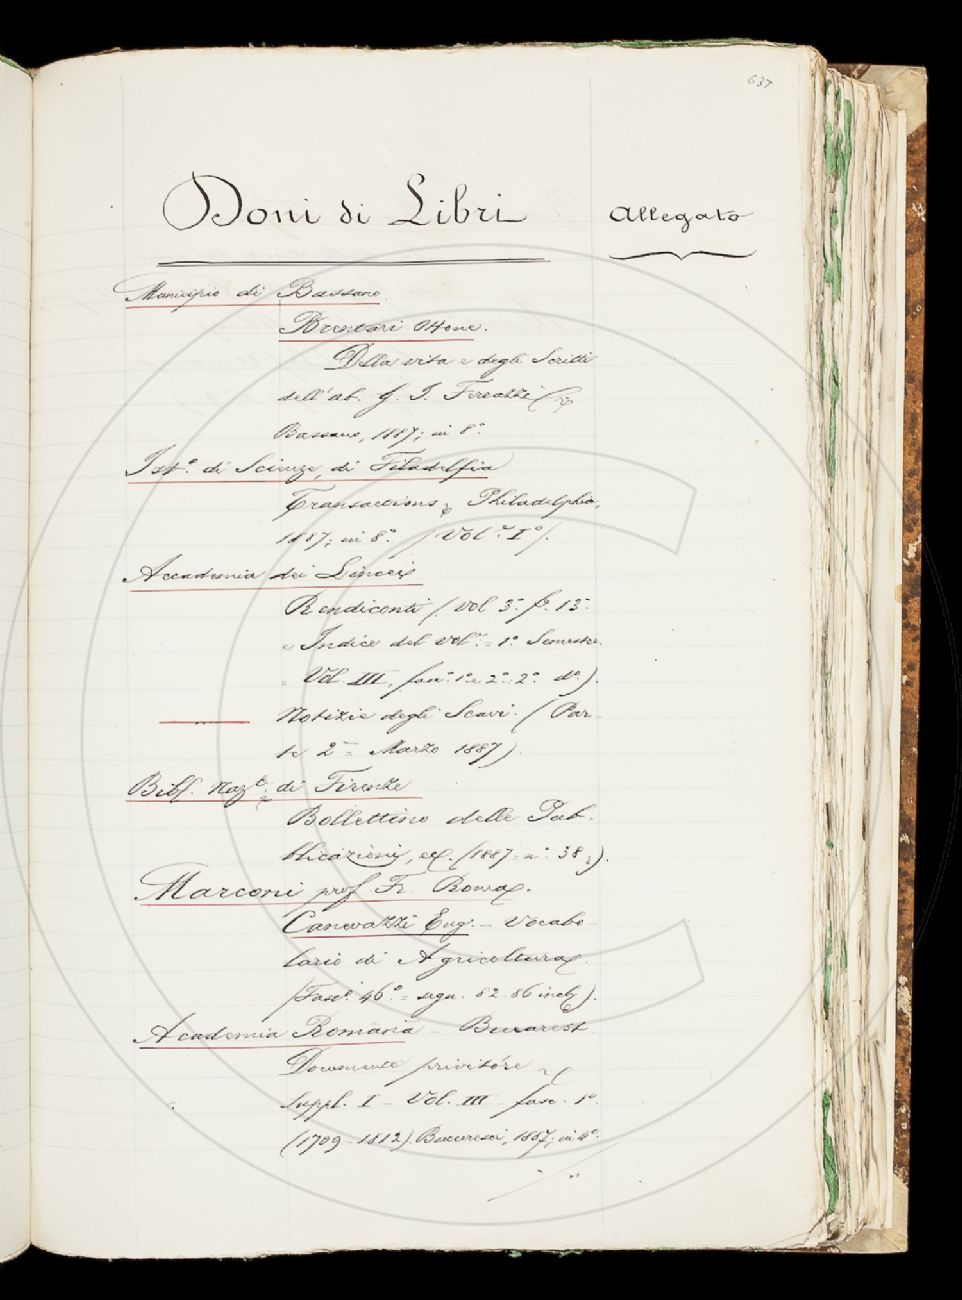 637
Doni di Libri
Allegato
Municipio di Bassano
Brentari Ottone.
Della vita e degli Scritti
dell'ab. G. J. Ferrazzi
Bassano, 1887; in 8.°
Ist.° di Scienze, di Filadelfia
Transactions & Philadelphia,
1887; in 8.° (Vol. I°).
Accademia dei Lincei
Rendiconti (vol 3.° f. 13.°
e Indice del vol. = 1.° Semestre.
Vol. III, fasc. 1.° e 2.°: 2.° d.°).
Notizie degli Scavi. (Par-
te 2.ª = Marzo 1887).
Bibl. Naz.le di Firenze
Bollettino delle Pub-
blicazioni, ecc. (1887 = n.° 38).
Marconi prof. Fr. Roma.
Canevazzi Eug. - Vocabo-
lario di Agricoltura.
(Fasc.° 46.° = segn. 82-86 incl.).
Academia Romana - Bucarest
Documente privitóre
Suppl. I - Vol. III - fasc. 1.°
(1709-1812). Bucuresci, 1887; in 4.°